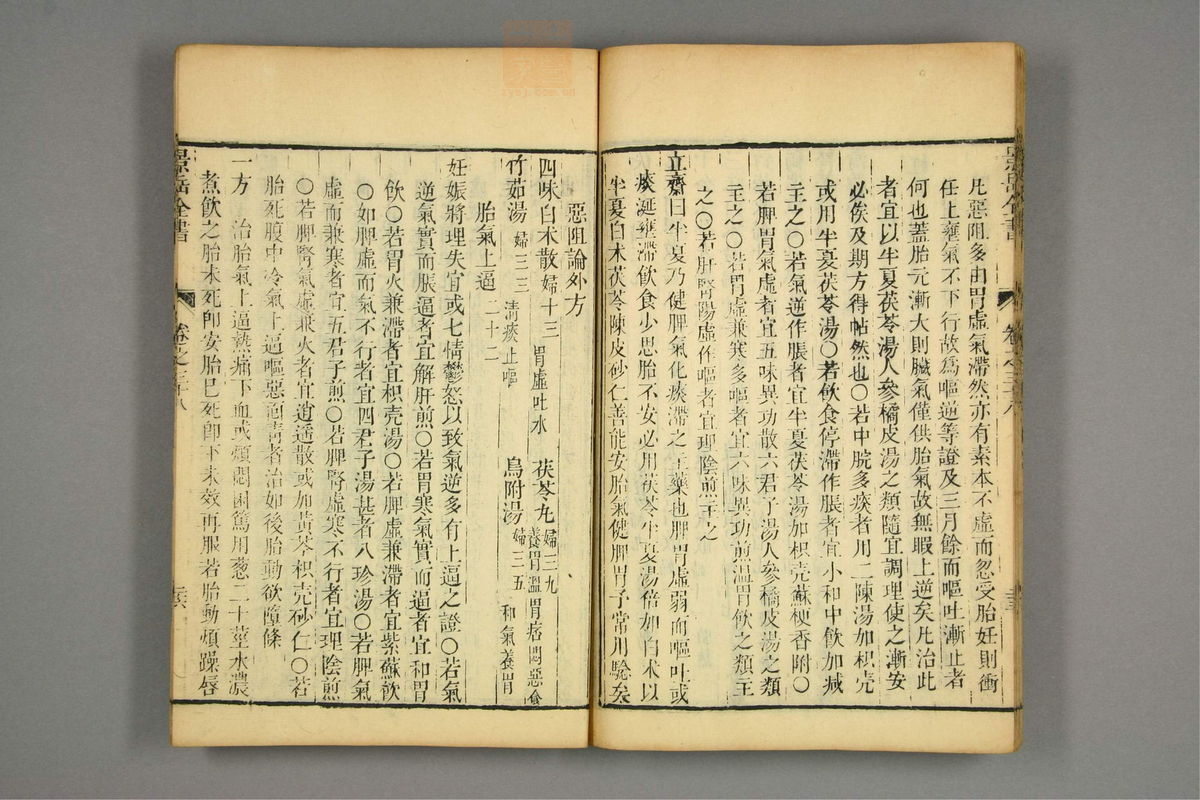 凡惡阻多由胃虛氣滯然亦有素本不虛而忽受胎妊則衝
任上壅氣不下行故爲嘔逆等證及三月餘而嘔吐漸止者
何也蓋胎元漸大則臟氣僅供胎氣故無暇上逆矣凡治此
者宜以半夏茯苓湯人參橘皮湯之類隨宜調理使之漸安
必俟及期方得帖然也〇若中脘多痰者用二陳湯加枳壳
或用半夏茯苓湯〇若飲食停滯作脹者宜小和中飲加減
主之〇若氣逆作脹者宜半夏茯苓湯加枳壳蘇梗香附〇
若脾胃氣虛者宜五味異功散六君子湯人參橘皮湯之類
主之〇若胃虛兼寒多嘔者宜六味異功煎溫胃飲之類主
之〇若肝腎陽虛作嘔者宜理陰煎主之
立齋曰半夏乃健脾氣化痰滯之主藥也脾胃虛弱而嘔吐或
痰涎壅滯飲食少思胎不安必用茯苓半夏湯倍加白术以
半夏白术茯苓陳皮砂仁善能安胎氣健脾胃予常用驗矣
景岳全書
卷之三十八
惡阻論外方
四味白术散婦十三 胃虛吐水 茯苓丸婦三九 養胃溫胃痞悶惡食
竹茹湯婦三三 清痰止嘔 烏附湯婦三五 和氣養胃
胎氣上逼 二十二
妊娠將理失宜或七情鬱怒以致氣逆多有上逼之證〇若氣
逆氣實而脹逼者宜解肝煎〇若胃寒氣實而逼者宜和胃
飲〇若胃火兼滯者宜枳壳湯〇若脾虛兼滯者宜紫蘇飲
〇如脾虛而氣不行者宜四君子湯甚者八珍湯〇若脾氣
虛而兼寒者宜五君子煎〇若脾腎虛寒不行者宜理陰煎
〇若脾腎氣虛兼火者宜逍遙散或加黃芩枳壳砂仁〇若
胎死腹中冷氣上逼嘔惡面青者治如後胎動欲墮條
一方 治胎氣上逼熱痛下血或煩悶困篤用葱二十莖水濃
煮飲之胎未死卽安胎已死卽下未效再服若胎動煩躁唇
景岳全書
卷之三十八